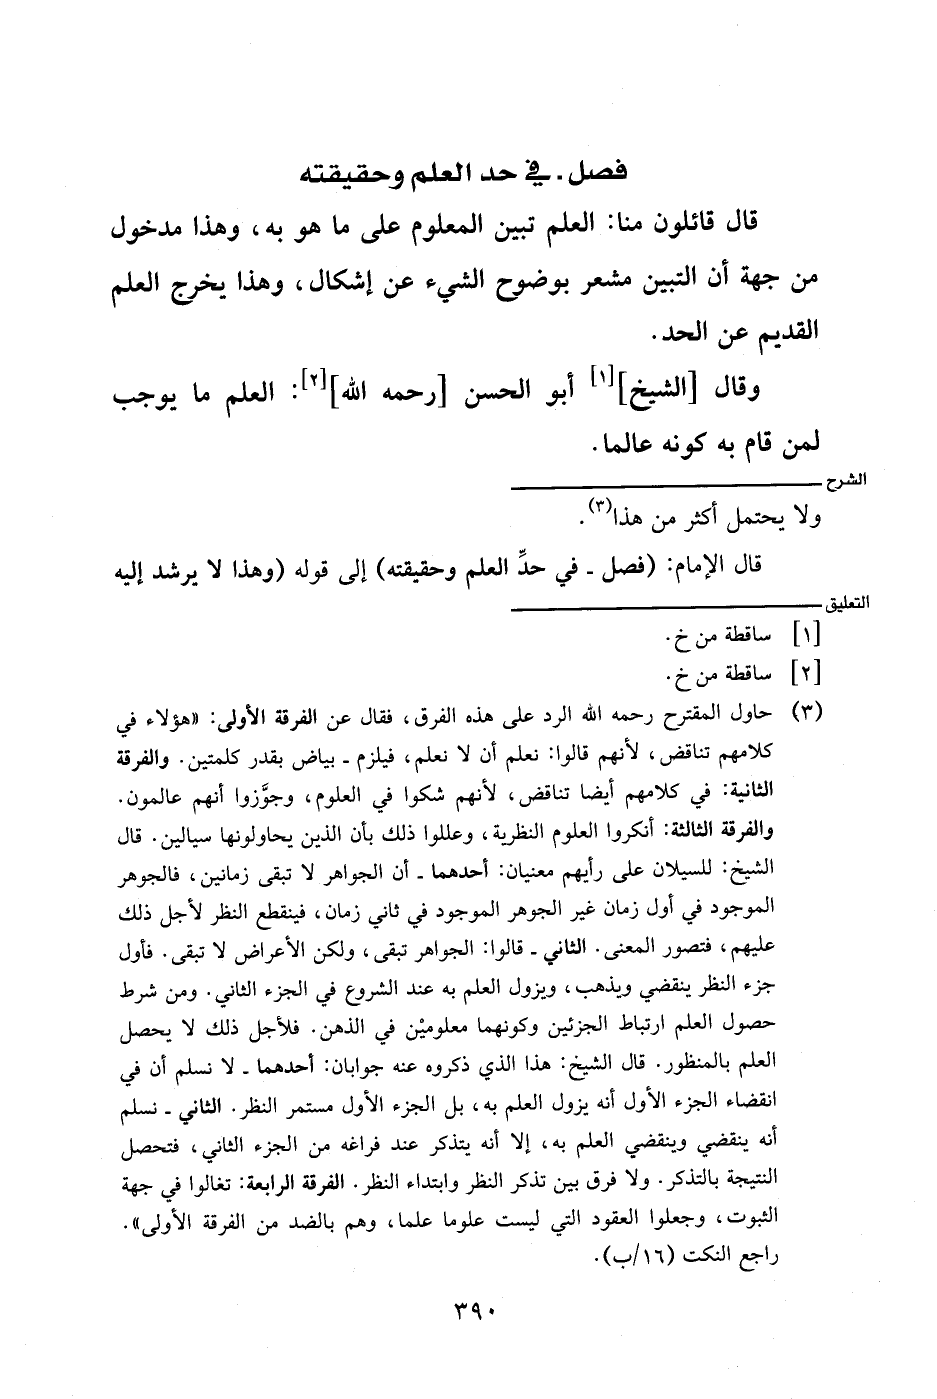 فصل. في حد العلم وحقيقته
قال قائلون منا: العلم تبين المعلوم على ما هو به، وهذا مدخول
من جهة أن التبين مشعر بوضوح الشيء عن إشكال، وهذا يخرج العلم
القديم عن الحد.
وقال [الشيخ][١] أبو الحسن [رحمه الله][٢]: العلم ما يوجب
لمن قام به كونه عالما.
الشرح
ولا يحتمل أكثر من هذا(٣).
قال الإمام: (فصل ـ في حدِّ العلم وحقيقته) إلى قوله (وهذا لا يرشد إليه
التعليق
[١] ساقطة من خ.
[٢] ساقطة من خ.
(٣) حاول المقترح رحمه الله الرد على هذه الفرق، فقال عن الفرقة الأولى: «هؤلاء في
كلامهم تناقض، لأنهم قالوا: نعلم أن لا نعلم، فيلزم ـ بياض بقدر كلمتين. والفرقة
الثانية: في كلامهم أيضا تناقض، لأنهم شكوا في العلوم، وجوَّزوا أنهم عالمون.
والفرقة الثالثة: أنكروا العلوم النظرية، وعللوا ذلك بأن الذين يحاولونها سيالين. قال
الشيخ: للسيلان على رأيهم معنيان: أحدهما ـ أن الجواهر لا تبقى زمانين، فالجوهر
الموجود في أول زمان غير الجوهر الموجود في ثاني زمان، فينقطع النظر لأجل ذلك
عليهم، فتصور المعنى. الثاني ـ قالوا: الجواهر تبقى، ولكن الأعراض لا تبقى. فأول
جزء النظر ينقضي ويذهب، ويزول العلم به عند الشروع في الجزء الثاني. ومن شرط
حصول العلم ارتباط الجزئين وكونهما معلوميْن في الذهن. فلأجل ذلك لا يحصل
العلم بالمنظور. قال الشيخ: هذا الذي ذكروه عنه جوابان: أحدهما ـ لا نسلم أن في
انقضاء الجزء الأول أنه يزول العلم به، بل الجزء الأول مستمر النظر. الثاني ـ نسلم
أنه ينقضي وينقضي العلم به، إلا أنه يتذكر عند فراغه من الجزء الثاني، فتحصل
النتيجة بالتذكر. ولا فرق بين تذكر النظر وابتداء النظر. الفرقة الرابعة: تغالوا في جهة
الثبوت، وجعلوا العقود التي ليست علوما علما، وهم بالضد من الفرقة الأولى».
راجع النكت (١٦/ب).
٣٩٠